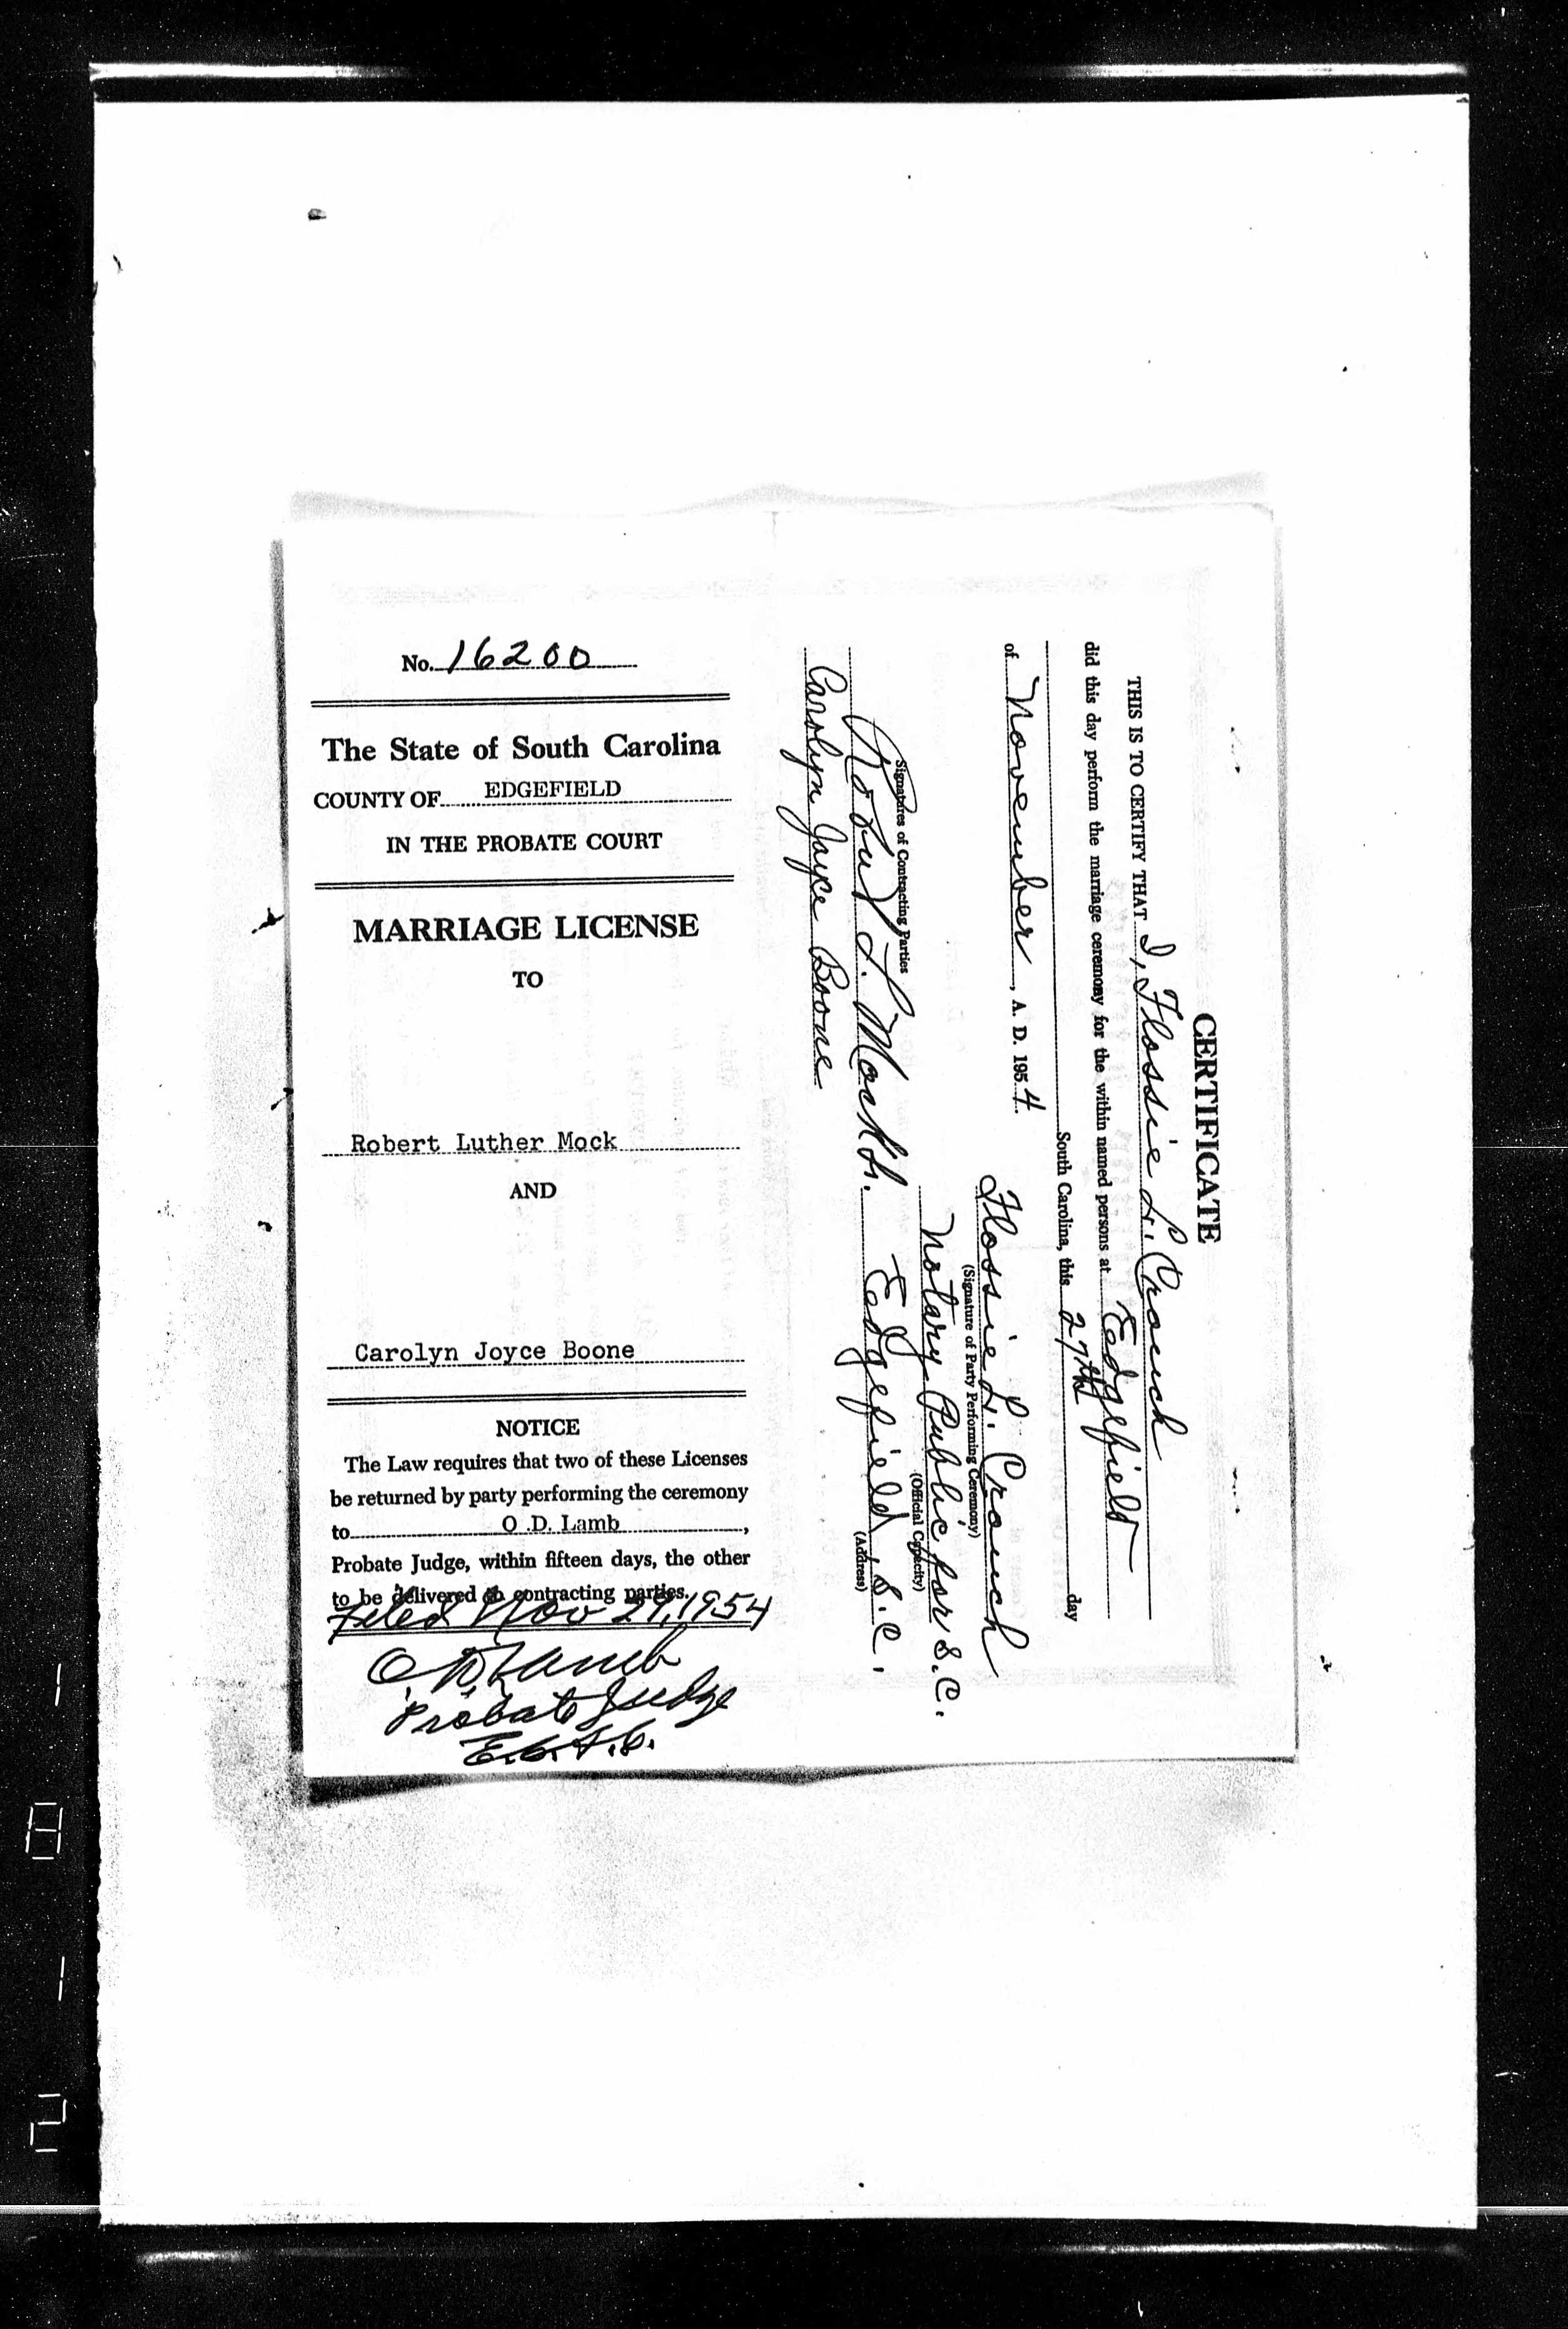 No. 16200
The State of South Carolina
COUNTY OF EDGEFIELD
IN THE PROBATE COURT
MARRIAGE LICENSE
TO
Robert Luther Mock
AND
Carolyn Joyce Boone
NOTICE
The Law requires that two of these Licenses
be returned by party performing the ceremony
to O .D. Lamb,
Probate Judge, within fifteen days, the other
to be delivered to contracting parties.
Filed Nov 29, 1954
O. D. Lamb
Probate Judge
E. C. S. C.
CERTIFICATE
THIS IS TO CERTIFY THAT I, Flossie L. Crouch
did this day perform the marriage ceremony for the within named persons at Edgefield
South Carolina, this 27th day
of November, A. D. 1954
Flossie L. Crouch
(Signature of Party Performing Ceremony)
Notary Public for S.C.
(Official Capacity)
Signatures of Contracting Parties
Robert L. Mock Jr. Edgefield, S.C.
(Address)
Carolyn Joyce Boone
1 8 1 2